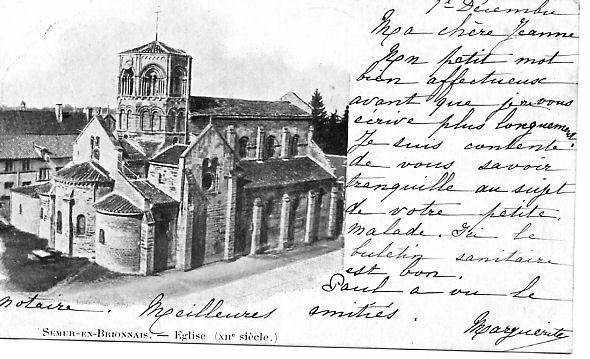 1er Décembre
Ma chère Jeanne
Un petit mot
bien affectueux
avant que je vous
écrive plus longuement.
Je suis contente
de vous savoir
tranquille au sujet
de votre petite
malade. Ici le
buletin sanitaire
est bon.
Paul a vu le
notaire. Meilleures amitiés.
Marguerite
SEMUR-EN-BRIONNAIS. — Eglise (XIIe siècle.)